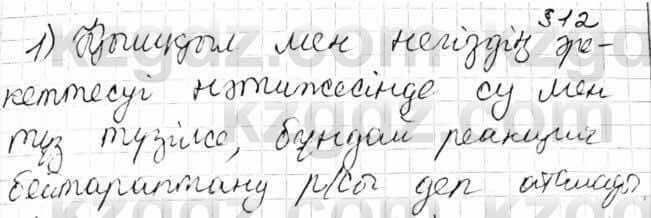 312
1) Қышқыл мен негіздің әре-
кеттесуі нәтижесінде су мен
тұз түзілсе, бұндай реакция
бейтараптану р/сы деп аталады.